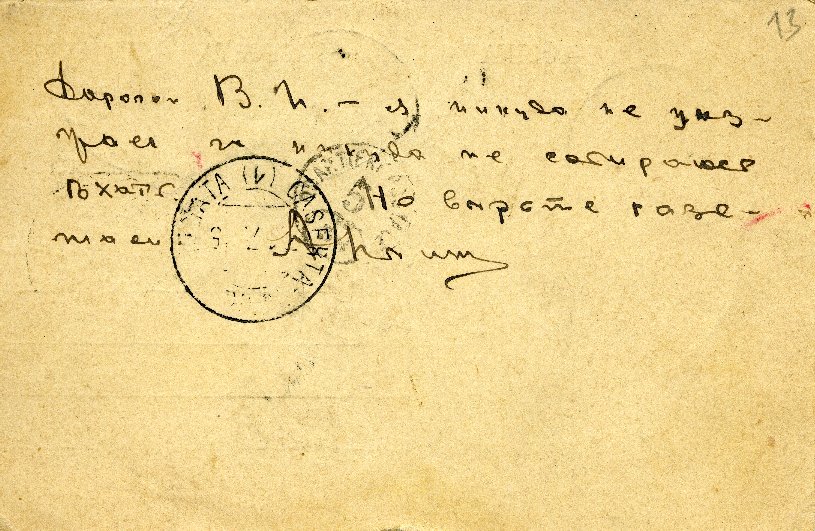 13
Дорогой В. И. – я никуда не уѣз-
жаю и никуда не собираюсь
ѣхать. Не вѣрьте газе-
там. А.
(V) CASERTA